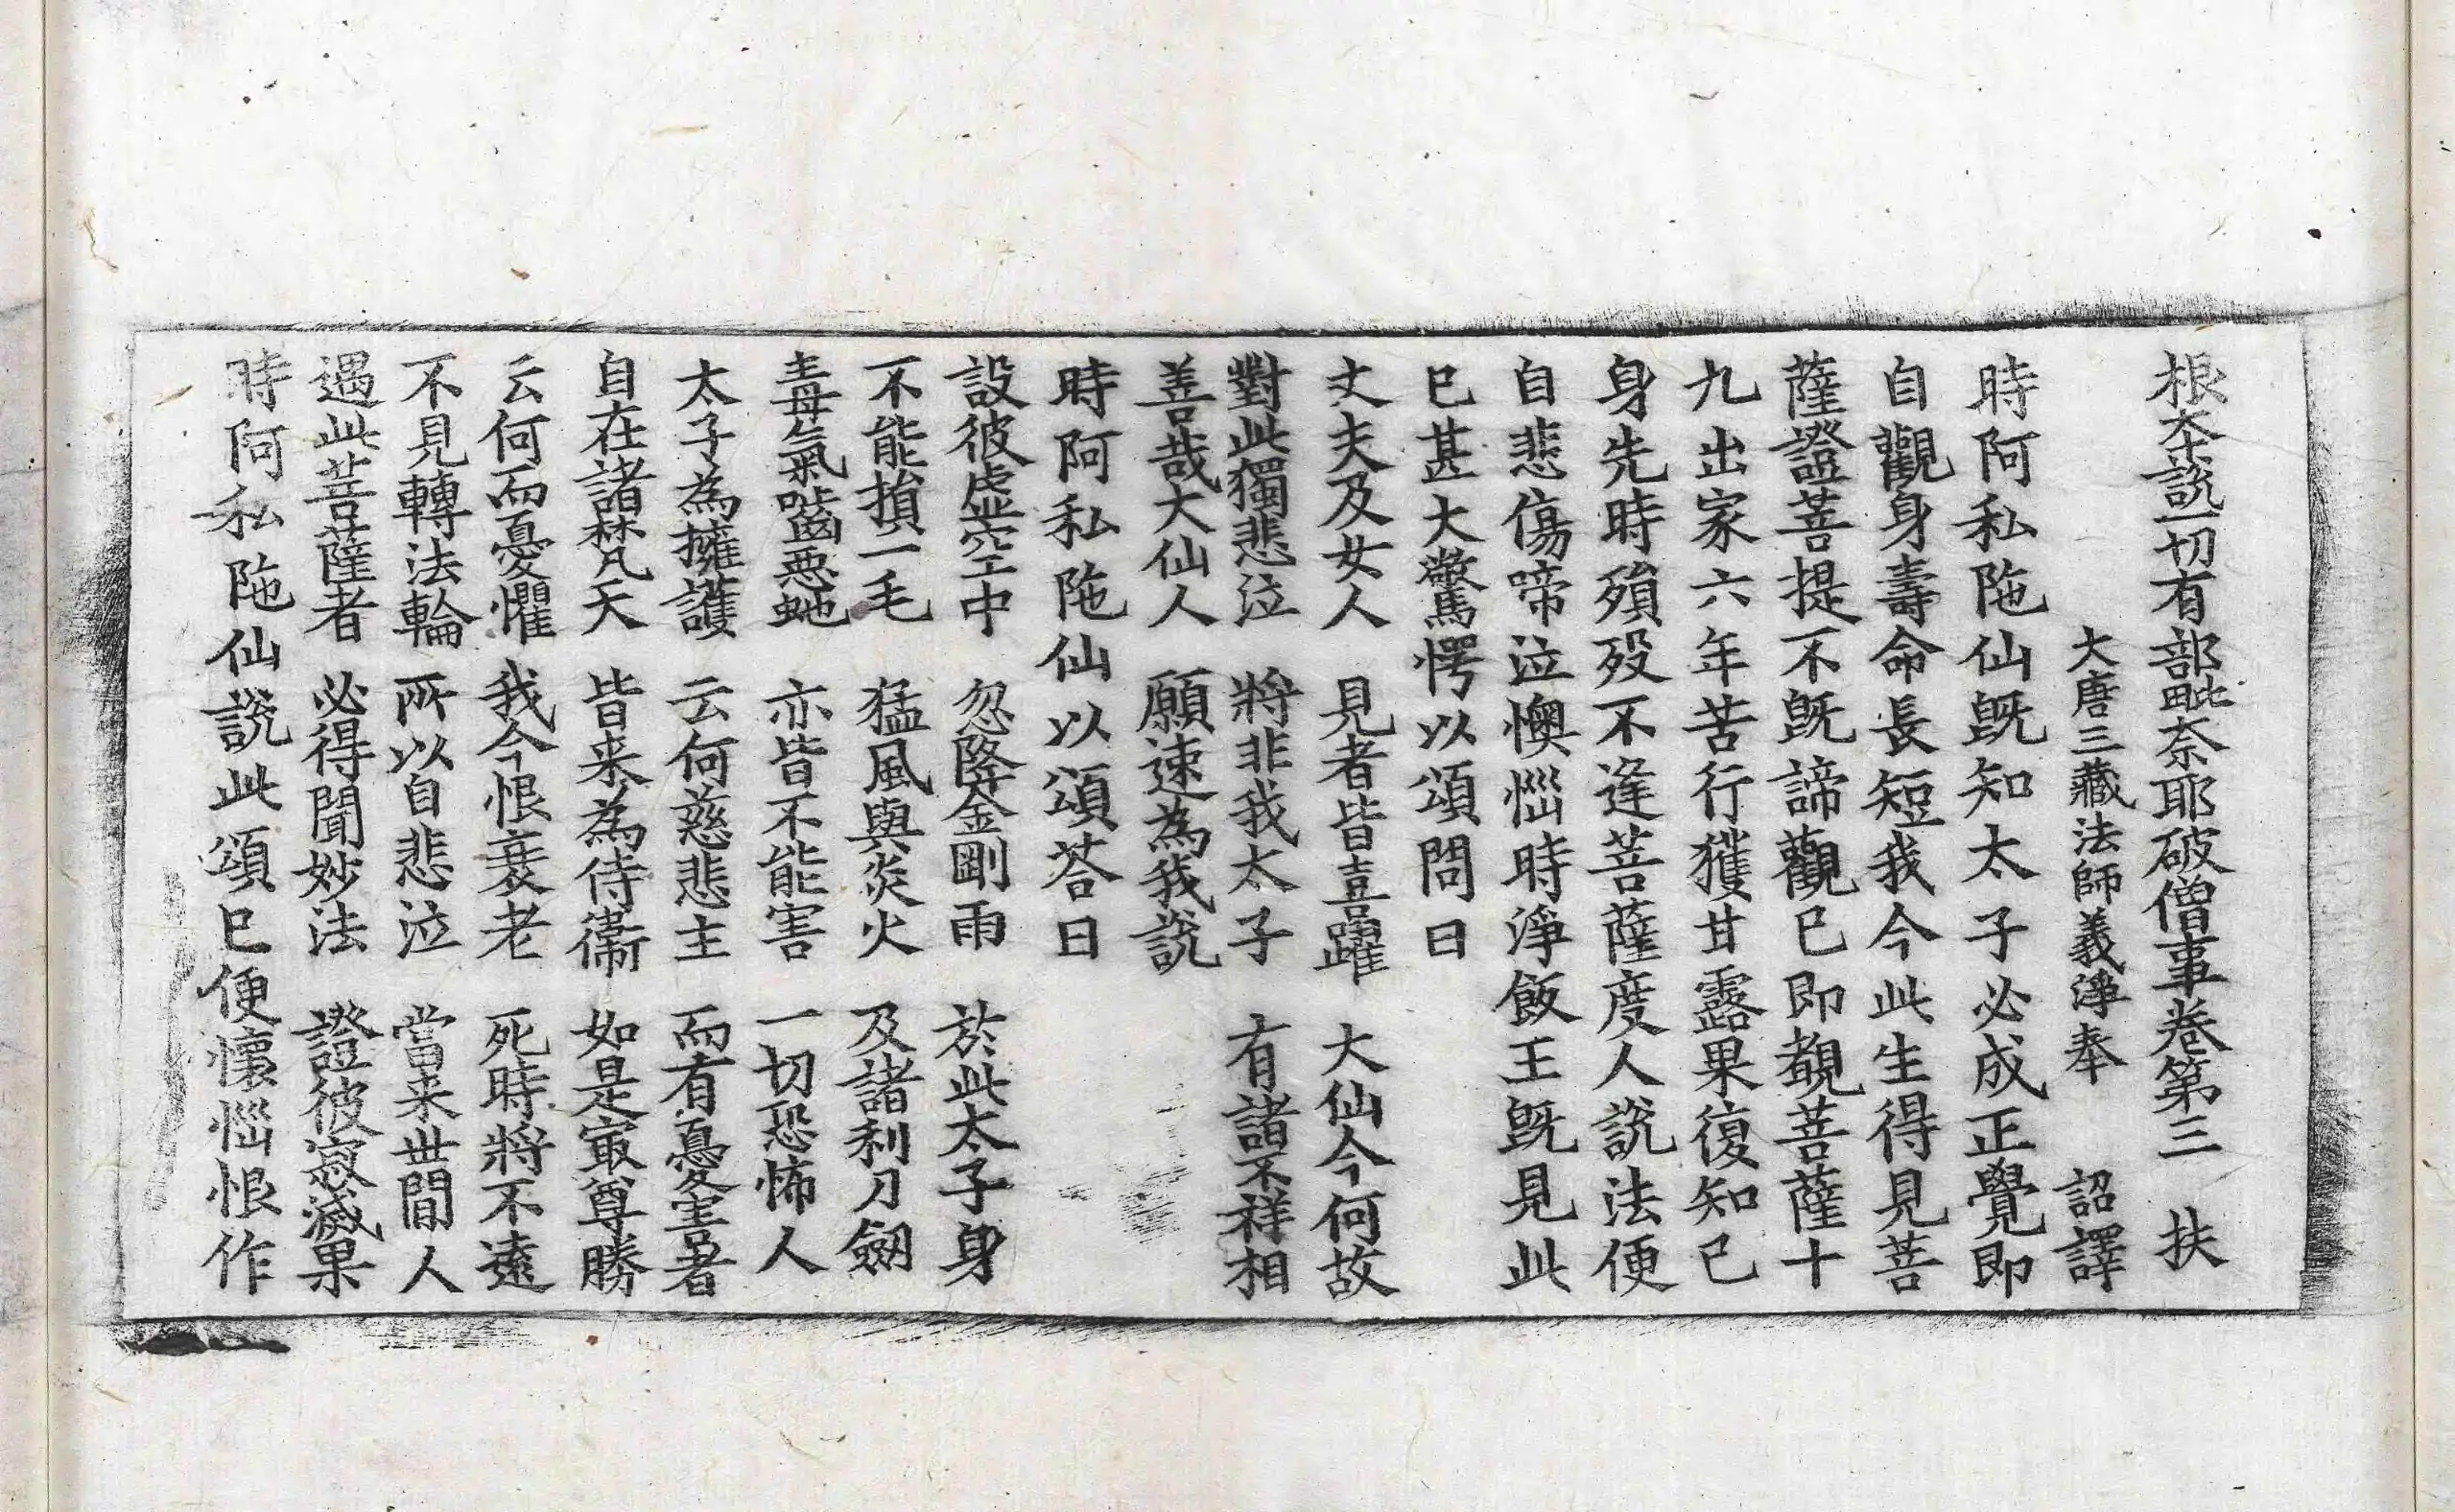 根本說一切有部毗奈耶破僧事卷第三　扶
大唐三藏法師義淨奉　詔譯
時阿私陁仙旣知太子必成正覺即
自觀身壽命長短我今此生得見菩
薩證菩提不旣諦觀已即覩菩薩十
九出家六年苦行獲甘露果復知己
身先時殞歿不逢菩薩度人說法便
自悲傷啼泣懊惱時淨飯王旣見此
已甚大驚愕以頌問曰
丈夫及女人　見者皆喜躍　大仙今何故
對此獨悲泣　將非我太子　有諸不祥相
善哉大仙人　願速為我說
時阿私陁仙以頌荅曰
設彼虛空中　忽降金剛雨　於此太子身
不能損一毛　猛風與炎火　及諸利刀劒
毒氣嚙惡虵　亦皆不能害　一切恐怖人
太子為擁護　云何慈悲主　而有憂害者
自在諸梵天　皆来為侍衞　如是㝡尊勝
云何而憂懼　我今恨衰老　死時將不遠
不見轉法輪　所以自悲泣　當来世間人
遇此菩薩者　必得聞妙法　證彼寂滅果
時阿私陁仙說此頌已便懷惱恨作